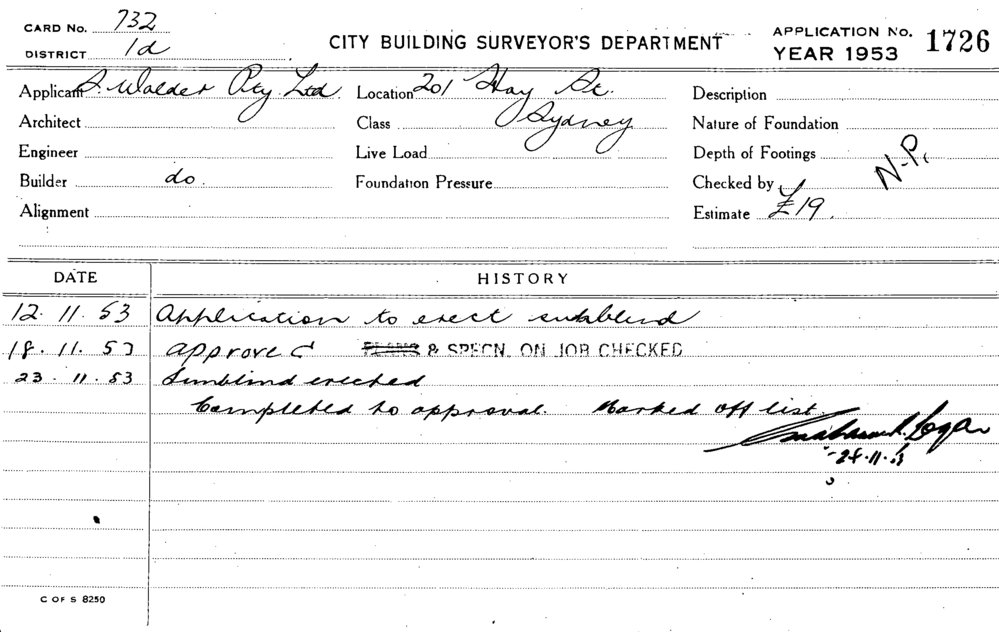 CARD No. 732
DISTRICT 1d
CITY BUILDING SURVEYOR'S DEPARTMENT
APPLICATION No. 1726
YEAR 1953
Applicant S. Walder Pty Ltd. Location 201 Hay St. Description
Architect Class Sydney Nature of Foundation
Engineer Live Load Depth of Footings N-P.
Builder do. Foundation Pressure Checked by
Alignment Estimate £19.
DATE HISTORY
12. 11. 53 Application to erect sunblind
18. 11. 53 approved & SPECN. ON JOB CHECKED
23. 11. 53 Sunblind erected
Completed to approval. Marked off list.
Logan
C OF S 8250